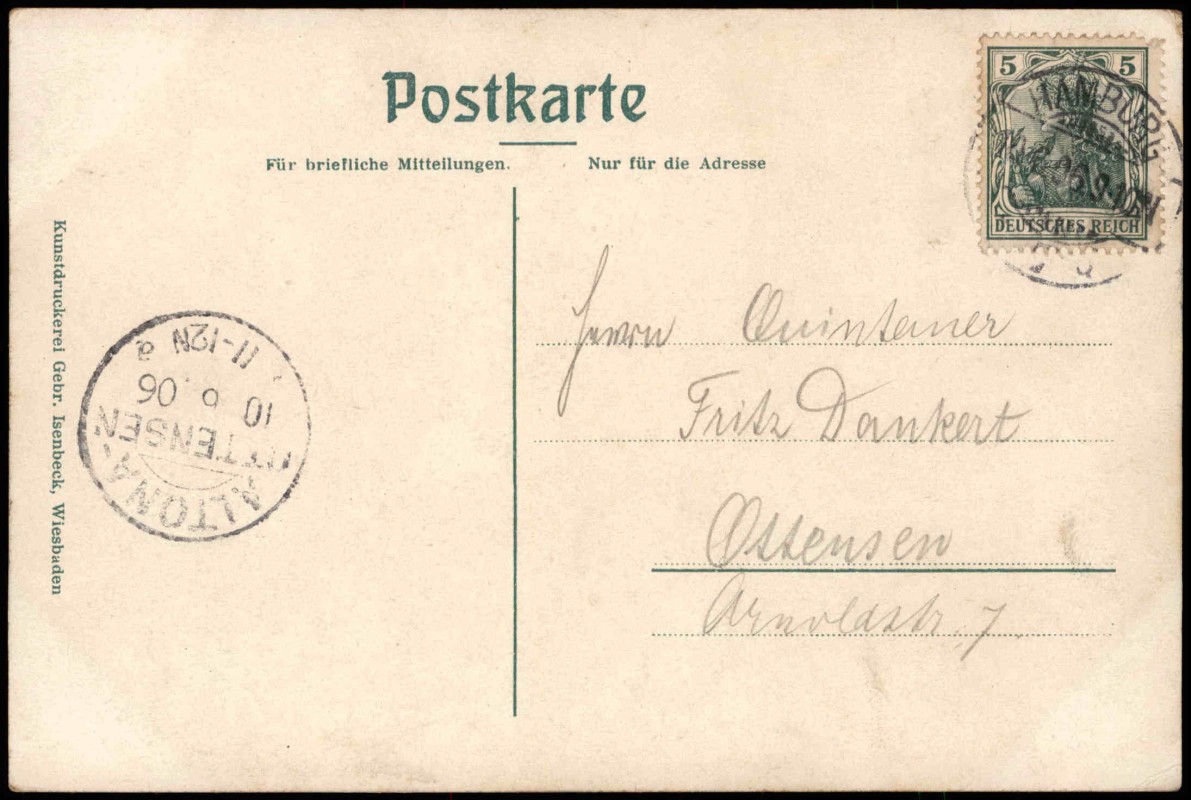 Postkarte
Für briefliche Mitteilungen. Nur für die Adresse
5 5
DEUTSCHES REICH
HAMBURG
Herrn Quintaner
Fritz Dankert
Ottensen
Arnoldstr. 7
Kunstdruckerei Gebr. Isenbeck, Wiesbaden
ALTONA-
OTTENSEN
10 6 06
11-12N a